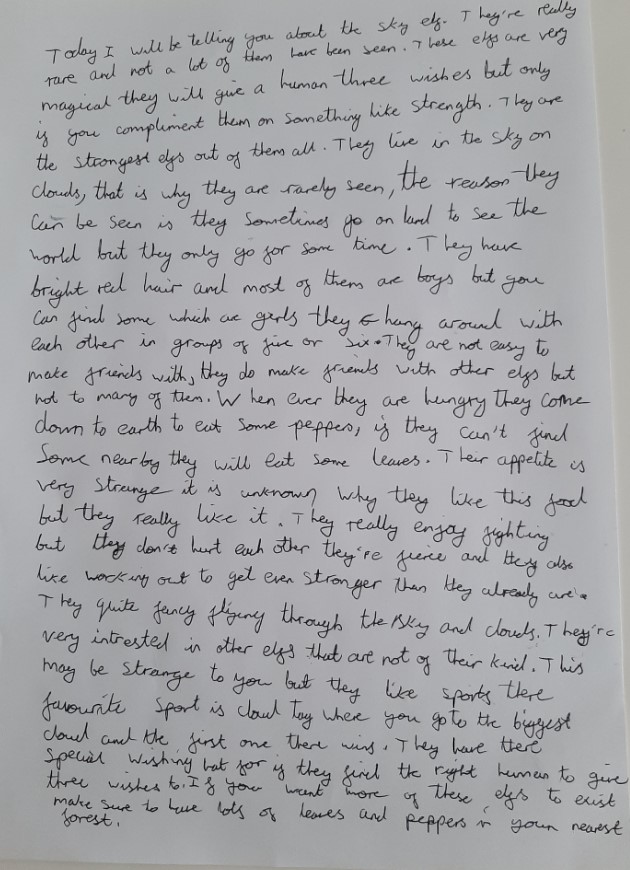 Today I will be telling you about the sky elf. They're really
rare and not a lot of them have been seen. These elfs are very
magical they will give a human three wishes but only
if you compliment them on something like strength. They are
the strongest elfs out of them all. They live in the sky on
clouds, that is why they are rarely seen, the reason they
can be seen is they sometimes go on land to see the
world but they only go for some time. They have
bright red hair and most of them are boys but you
can find some which are gerls they hang around with
each other in groups of five or six. They are not easy to
make friends with, they do make friends with other elfs but
not to many of them. When ever they are hungry they come
down to earth to eat some peppers, if they can't find
some nearby they will eat some leaves. Their appetite is
very strange it is unknown why they like this food
but they really like it. They really enjoy fighting
but they don't hurt each other they're fierce and they also
like working out to get even stronger than they already are.
They quite fancy flying through the sky and clouds. They're
very intrested in other elfs that are not of their kind. This
may be strange to you but they like sports there
favourite sport is cloud tag where you go to the biggest
cloud and the first one there wins. They have there
special wishing hat for if they find the right human to give
three wishes to. If you want more of these elfs to exist
make sure to have lots of leaves and peppers in your nearest
forest.